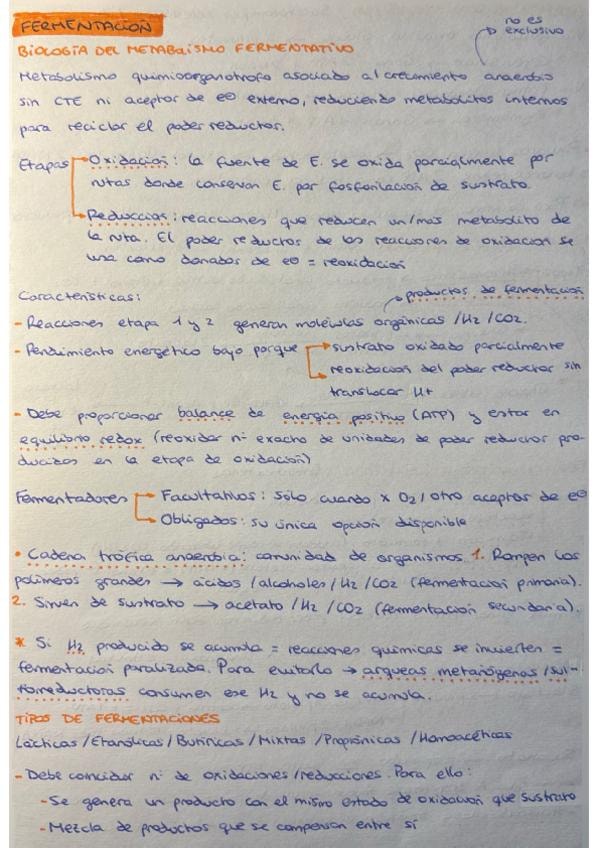 FERMENTACIÓN
no es
exclusivo
BIOLOGÍA DEL METABOLISMO FERMENTATIVO
Metabolismo quimioorganotrofo asociado al crecimiento anaerobio
sin CTE ni aceptor de e⊖ externo, reduciendo metabolitos internos
para reciclar el poder reductor.
Etapas → Oxidación: la fuente de E. se oxida parcialmente por
rutas donde conservan E. por fosforilación de sustrato.
→ Reducción: reacciones que reducen un/más metabolito de
la ruta. El poder reductor de las reacciones de oxidación se
usa como donador de e⊖ = reoxidación
Características:
→ productos de fermentación
- Reacciones etapa 1 y 2 generan moléculas orgánicas /H2/CO2.
- Rendimiento energético bajo porque → sustrato oxidado parcialmente
→ reoxidación del poder reductor sin
translocar H+
- Debe proporcionar balance de energía positivo (ATP) y estar en
equilibrio redox (reoxidar nº exacto de unidades de poder reductor pro-
ducidas en la etapa de oxidación)
Fermentadores → Facultativos: sólo cuando x O2/otro aceptor de e⊖
→ Obligados: su única opción disponible
• Cadena trófica anaerobia: comunidad de organismos. 1. Rompen los
polímeros grandes → ácidos/alcoholes/H2/CO2 (fermentación primaria).
2. Sirven de sustrato → acetato/H2/CO2 (fermentación secundaria).
* Si H2 producido se acumula = reacciones químicas se invierten =
fermentación paralizada. Para evitarlo → arqueas metanógenas/sul-
forreductoras consumen ese H2 y no se acumula.
TIPOS DE FERMENTACIONES
Lácticas/Etanólicas/Butíricas/Mixtas/Propiónicas/Homoacéticas
- Debe coincidir nº de oxidaciones/reducciones. Para ello:
- Se genera un producto con el mismo estado de oxidación que sustrato
- Mezcla de productos que se compensan entre sí